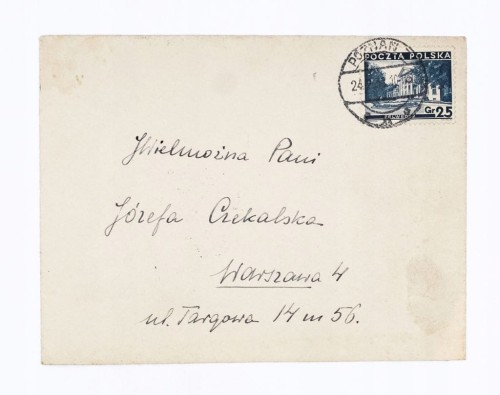 POZNAŃ
24
POCZTA POLSKA
Gr 25
JWielmożna Pani
Józefa Czekalska
Warszawa 4
ul. Targowa 14 m 56.